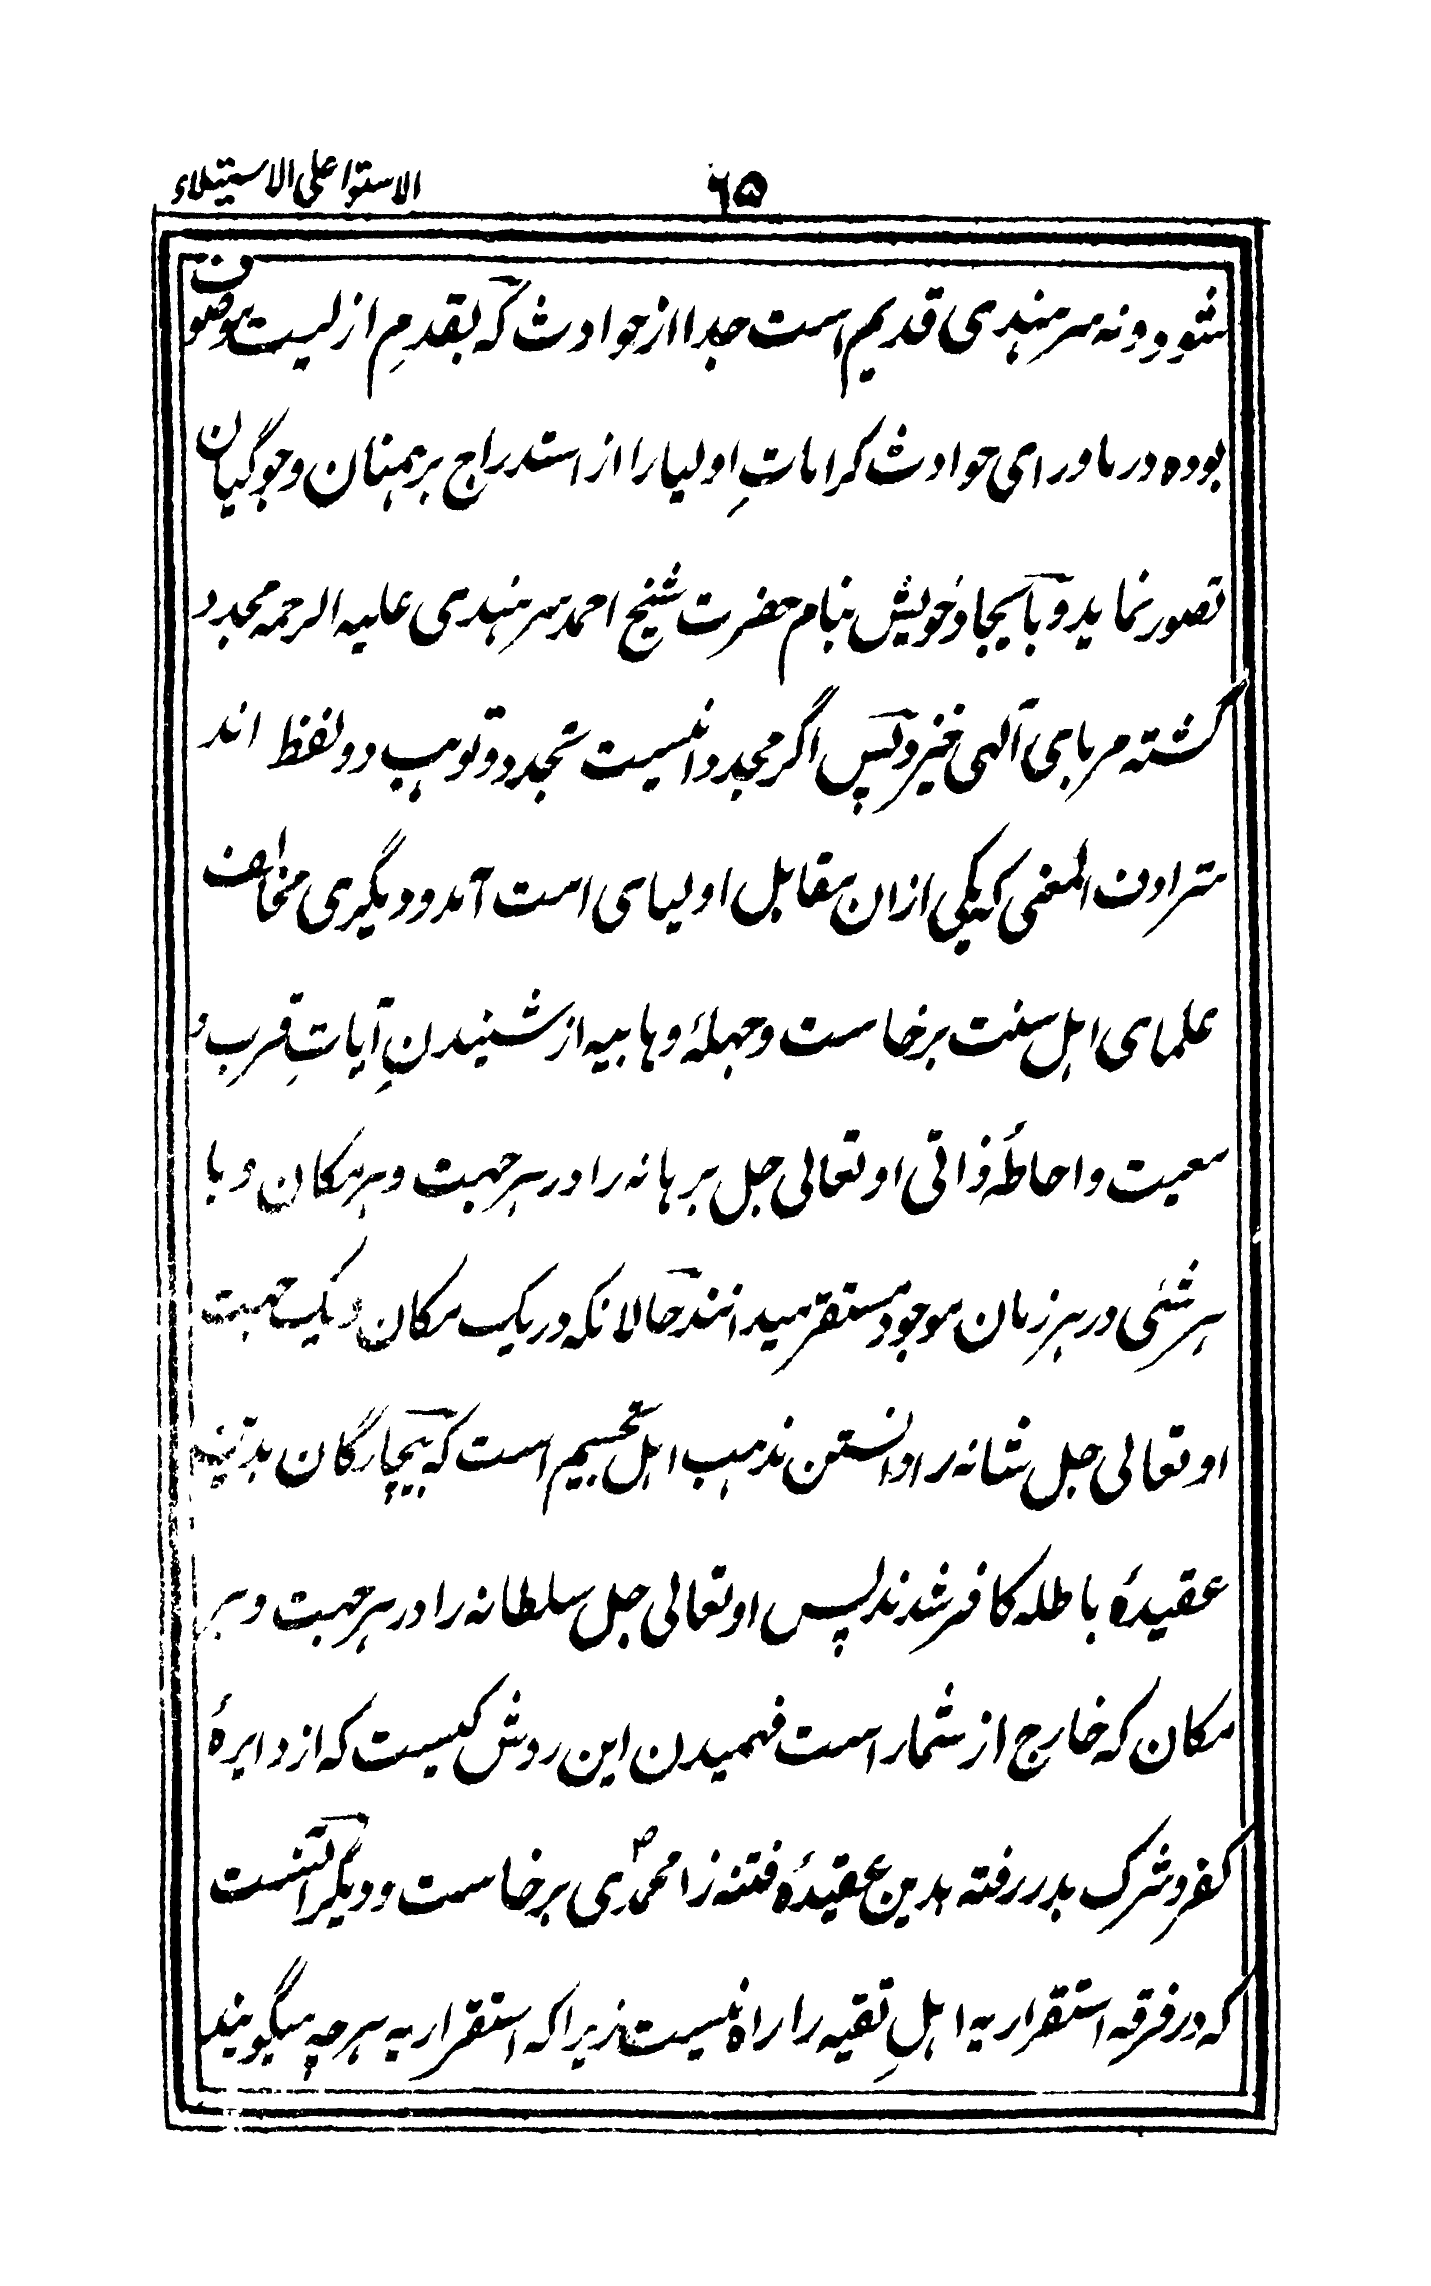 ۶۵ الاستوا علی الاستیلاء
شود و نه سرهندی قدیم است جدا از حوادث که بقدمِ ازلیست موصوف
بوده در ماورای حوادث کراماتِ اولیا را از استدراج برهمنان و جوگیان
تصور نماید و با ایجاد خویش بنام حضرت شیخ احمد سرهندی علیه الرحمه مجدد
گشته مر بای آلهی خیزد پس اگر مجدد انیست تجدد و توهب دو لفظ اند
مترادف المعنی که یکی ازان مقابل اولیای است آمد و دیگری مخالف
علمای اهل سنت برخاست و جهلهٔ وهابیه از شنیدنِ آیاتِ قرب و
معیت و احاطهٔ ذاتی او تعالی جل برهانه را در هر جهت و هر مکان و با
هر شئی در هر زمان موجود مستقر میدانند حالانکه در یک مکان و یک جهت
او تعالی جل شانه را دانستن مذهب اهل تجسیم است که بیچارگان بدین
عقیدهٔ باطله کافر شدند پس او تعالی جل سلطانه را در هر جهت و هر
مکان که خارج از شمار است فهمیدن این روش کیست که از دایرهٔ
کفر و شرک بدر رفته بدین عقیدهٔ فتنه زا محمدی برخاست و دیگر آنست
که در فرقه استقراریه اهلِ تقیه را راه نیست زیرا که استقراریه هرچه میگویند